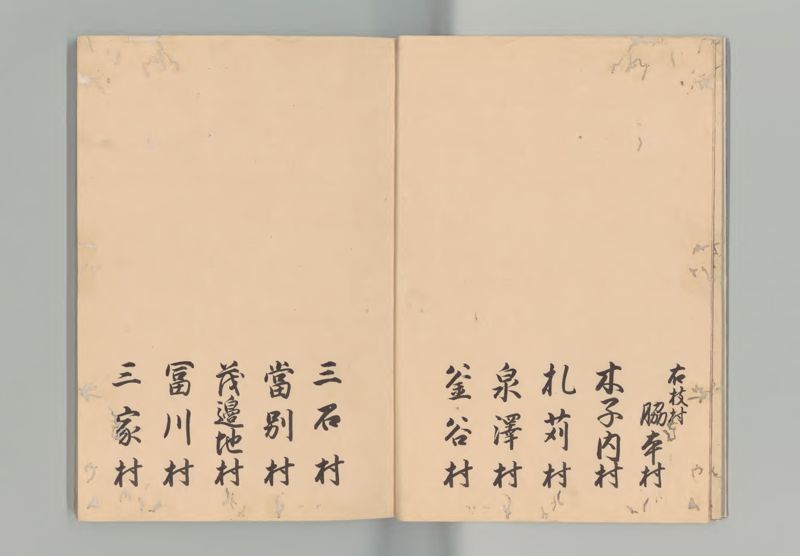 右枝村
脇本村
木子内村
札苅村
泉澤村
釜谷村
三石村
當別村
茂邊地村
冨川村
三家村